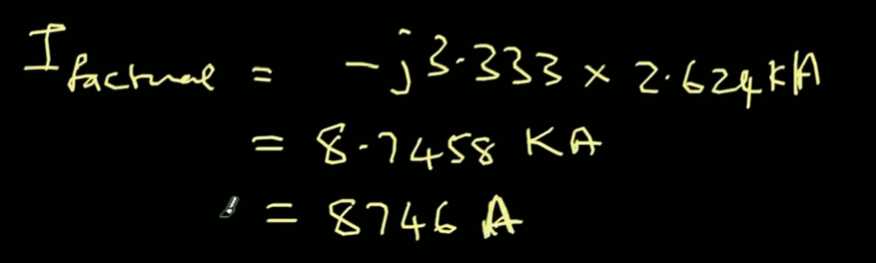 I factual = -j3.333 × 2.624 kA
= 8.7458 KA
= 8746 A